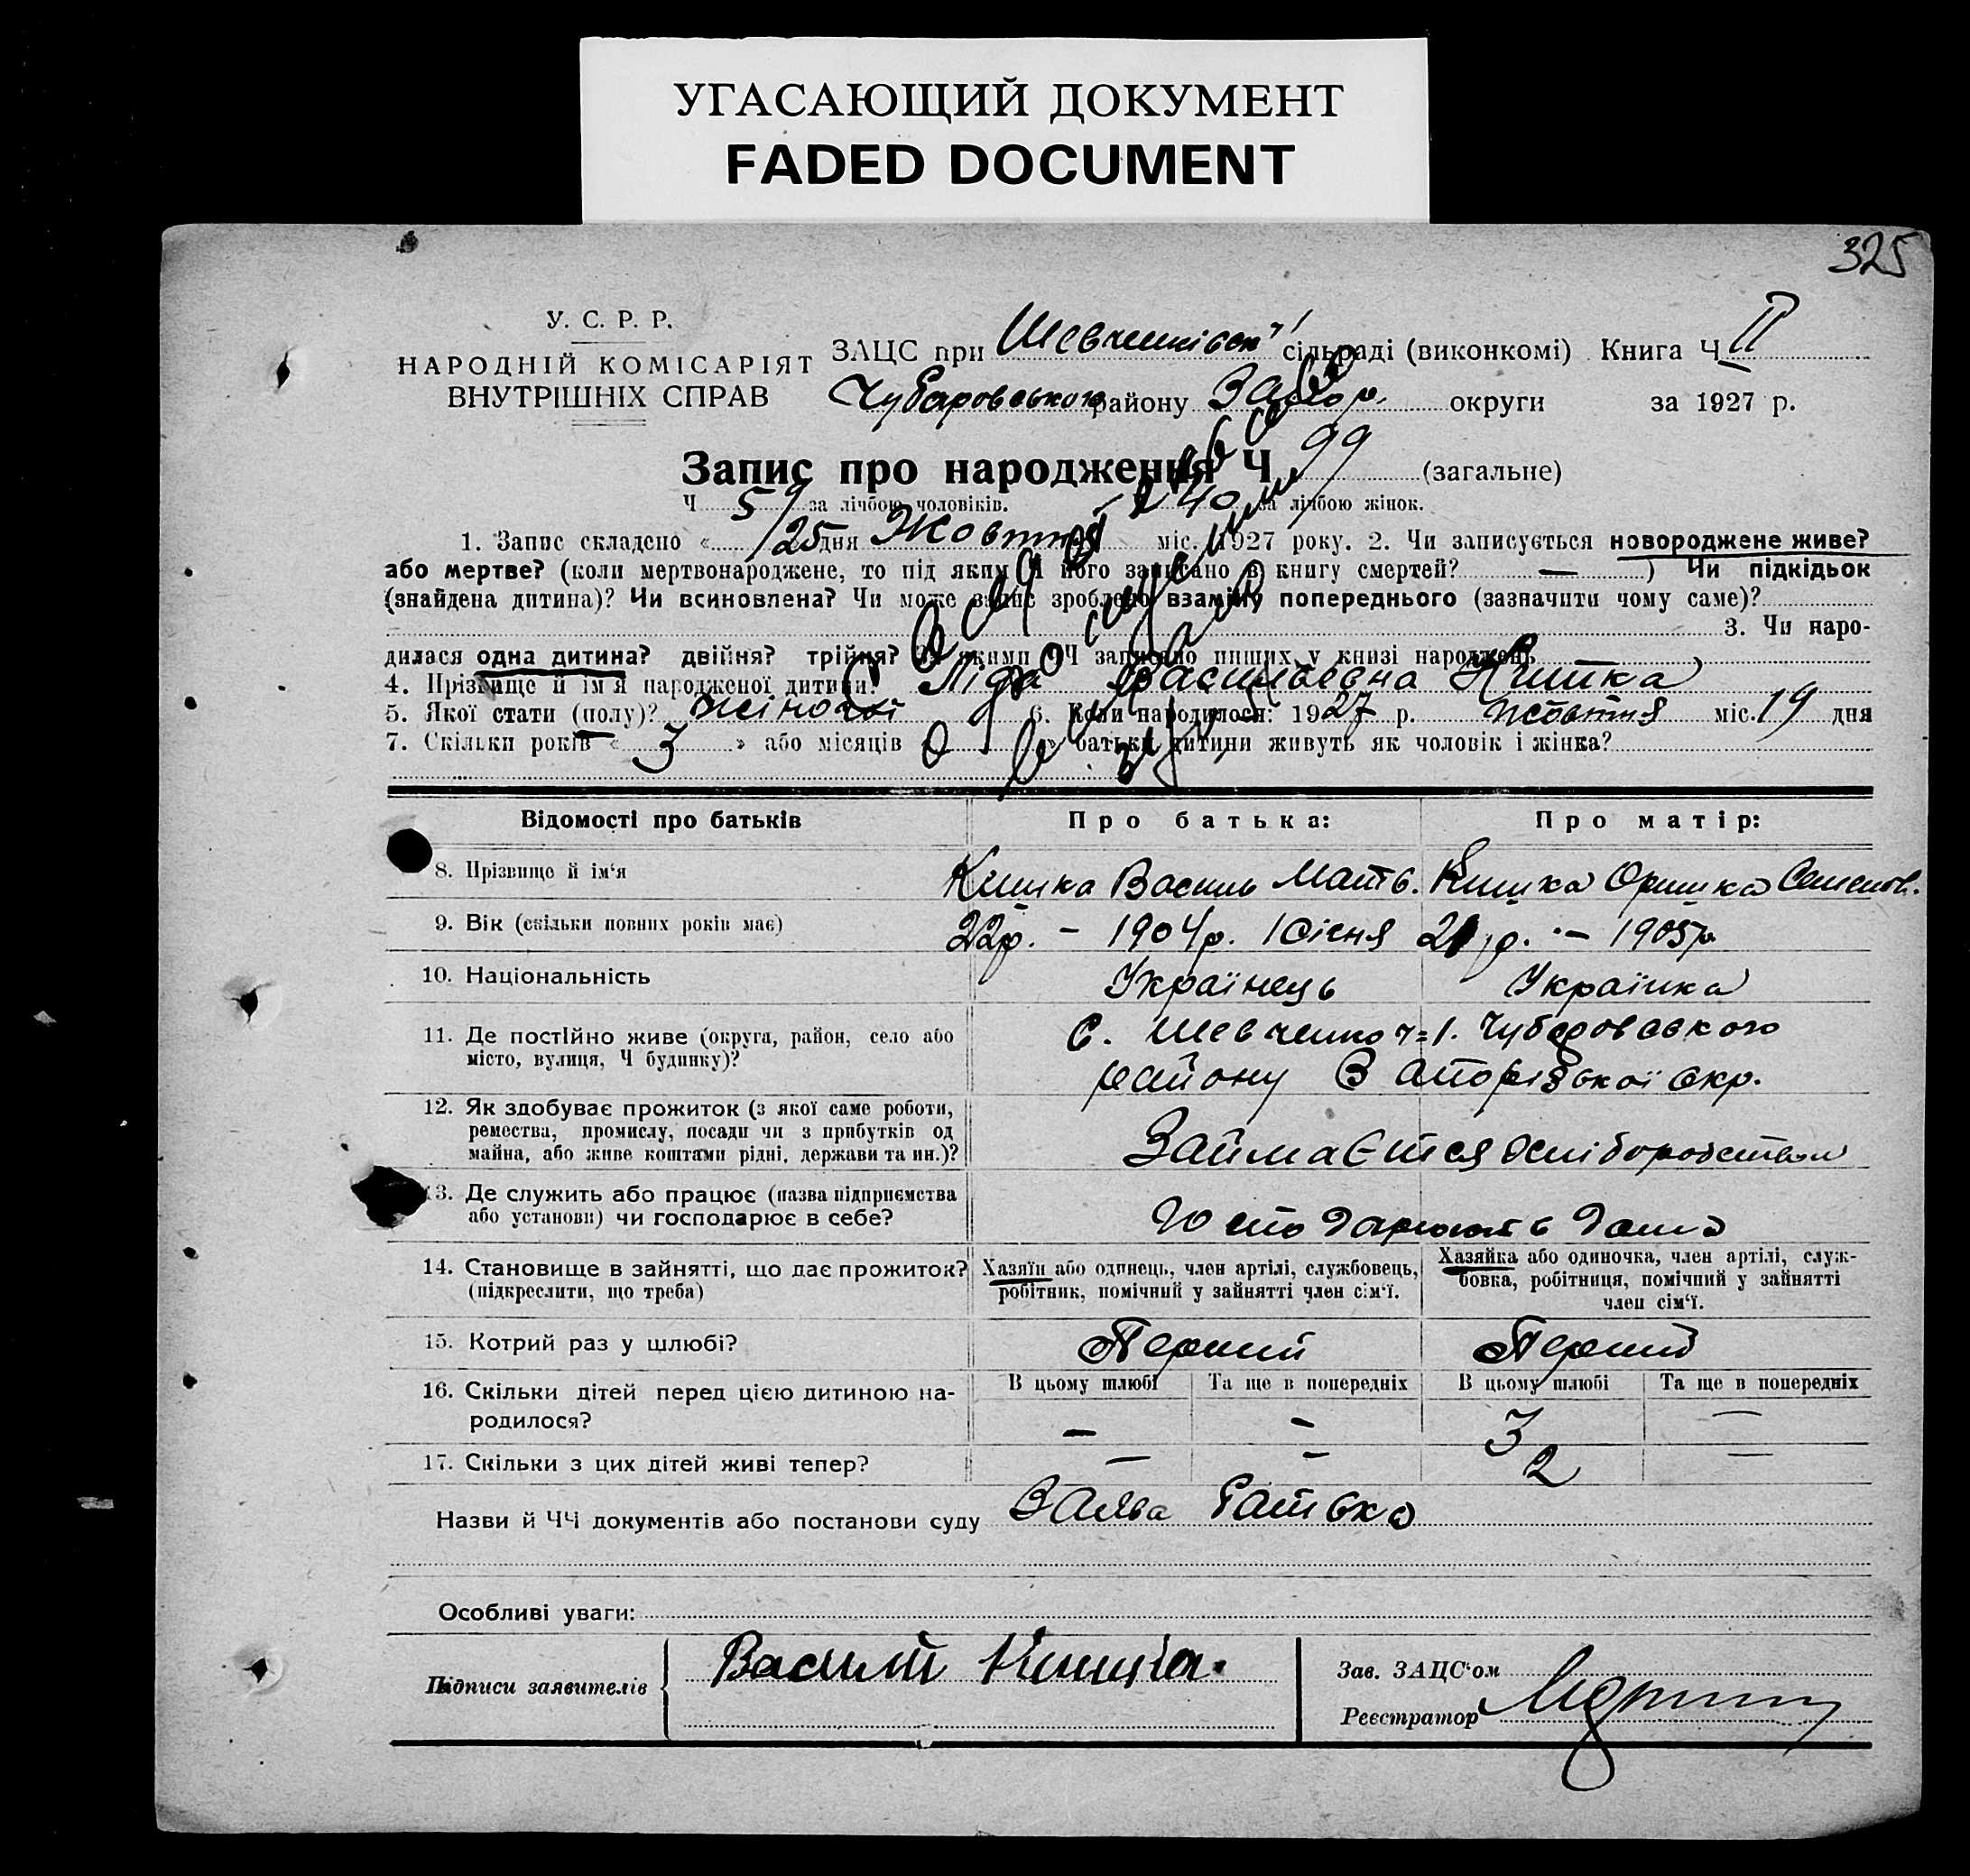 УГАСАЮЩИЙ ДОКУМЕНТ
FADED DOCUMENT
325
У. С. Р. Р.
НАРОДНІЙ КОМІСАРІЯТ
ВНУТРІШНІХ СПРАВ
ЗАЦС при Шевченківськ сільраді (виконкомі) Книга Ч II
Чубаровського району Запор. округи за 1927 р.
Запис про народження Ч 99 (загальне)
Ч 59 за лічбою чоловіків. 40 за лічбою жінок.
1. Запис складено « 25 дня Жовтня міс. 1927 року. 2. Чи записується новороджене живе?
або мертве? (коли мертвонароджене, то під яким Ч його записано в книгу смертей? — ) Чи підкідьок
(знайдена дитина)? Чи всиновлена? Чи може запис зроблено взаміну попереднього (зазначити чому саме)?
3. Чи наро-
дилася одна дитина? двійня? трійня? За якими ЧЧ записано инших у книзі народжень
4. Прізвище й ім'я народженої дитини? Ліда Васильевна Кишка
5. Якої стати (полу)? жіночої 6. Коли народилося: 1927 р. жовтня міс. 19 дня
7. Скільки років « 3 » або місяців « » батьки дитини живуть як чоловік і жінка?
Відомості про батьків Про батька: Про матір:
8. Прізвище й ім'я Кишка Василь Матв. Кишка Оришка Семенов.
9. Вік (скільки повних років має) 22р. – 1904р. 21 р. – 1905р
10. Національність Українець Українка
11. Де постійно живе (округа, район, село або
місто, вулиця, Ч будинку)?
С. Шевченко ч=1. Чубаровського
району Запорізької окр.
12. Як здобуває прожиток (з якої саме роботи,
ремества, промислу, посади чи з прибутків од
майна, або живе коштами рідні, держави та ин.)?
Займаєтся хліборобством
13. Де служить або працює (назва підприємства
або установи) чи господарює в себе?
14. Становище в зайнятті, що дає прожиток?
(підкреслити, що треба)
Хазяїн або одинець, член артілі, службовець,
робітник, помічний у зайнятті член сім'ї.
Хазяйка або одиночка, член артілі, служ-
бовка, робітниця, помічний у зайнятті
член сім'ї.
15. Котрий раз у шлюбі? Перший Перший
16. Скільки дітей перед цією дитиною на-
родилося?
В цьому шлюбі Та ще в попередніх В цьому шлюбі Та ще в попередніх
– – 3 —
17. Скільки з цих дітей живі тепер? — – 2 —
Назви й ЧЧ документів або постанови суду Заява батька
Особливі уваги:
Підписи заявителів Василий Кишка.
Зав. ЗАЦС'ом
Реєстратор